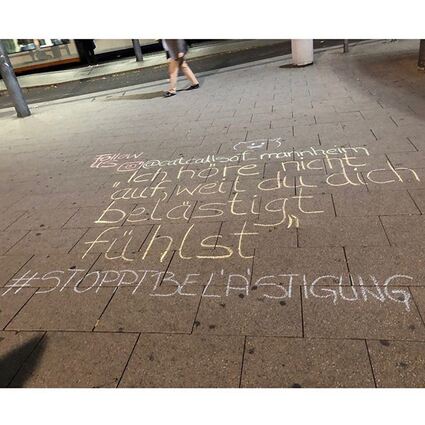 Follow
us @catcallsof_mannheim
"Ich höre nicht
auf, weil du dich
belästigt
fühlst"
#STOPPTBELÄSTIGUNG